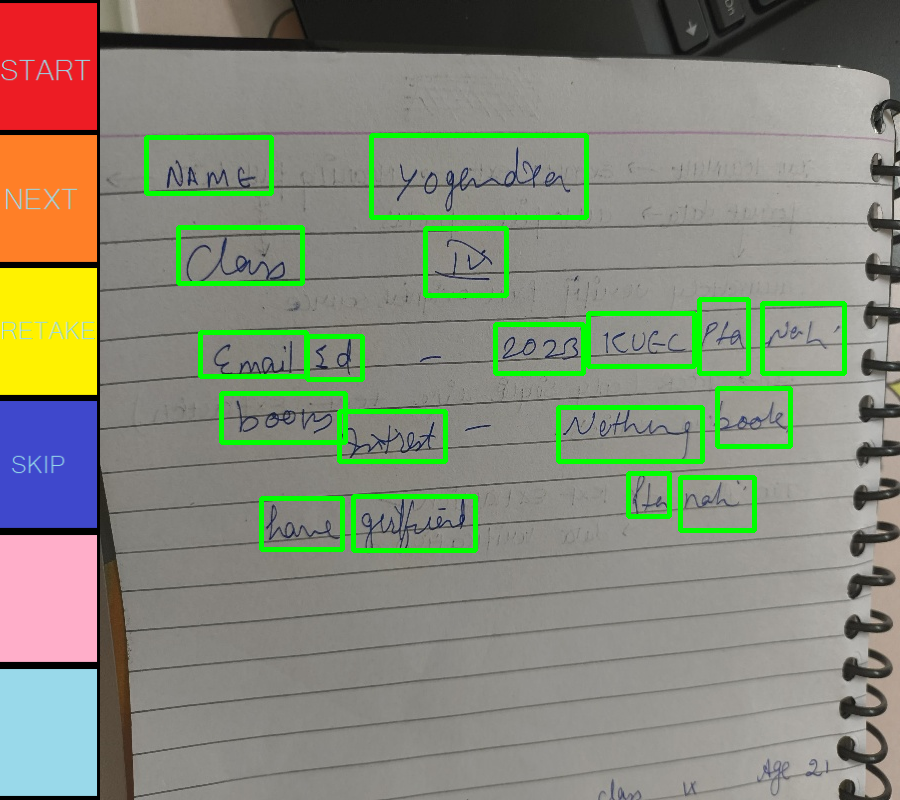 START
NEXT
RETAKE
SKIP
NAME Yogendra
Class IX
Email Id - 2023 KUEC Pta Nahi
books Intrest - Nothing book
have girlfriend Pta nahi
class IX Age 21